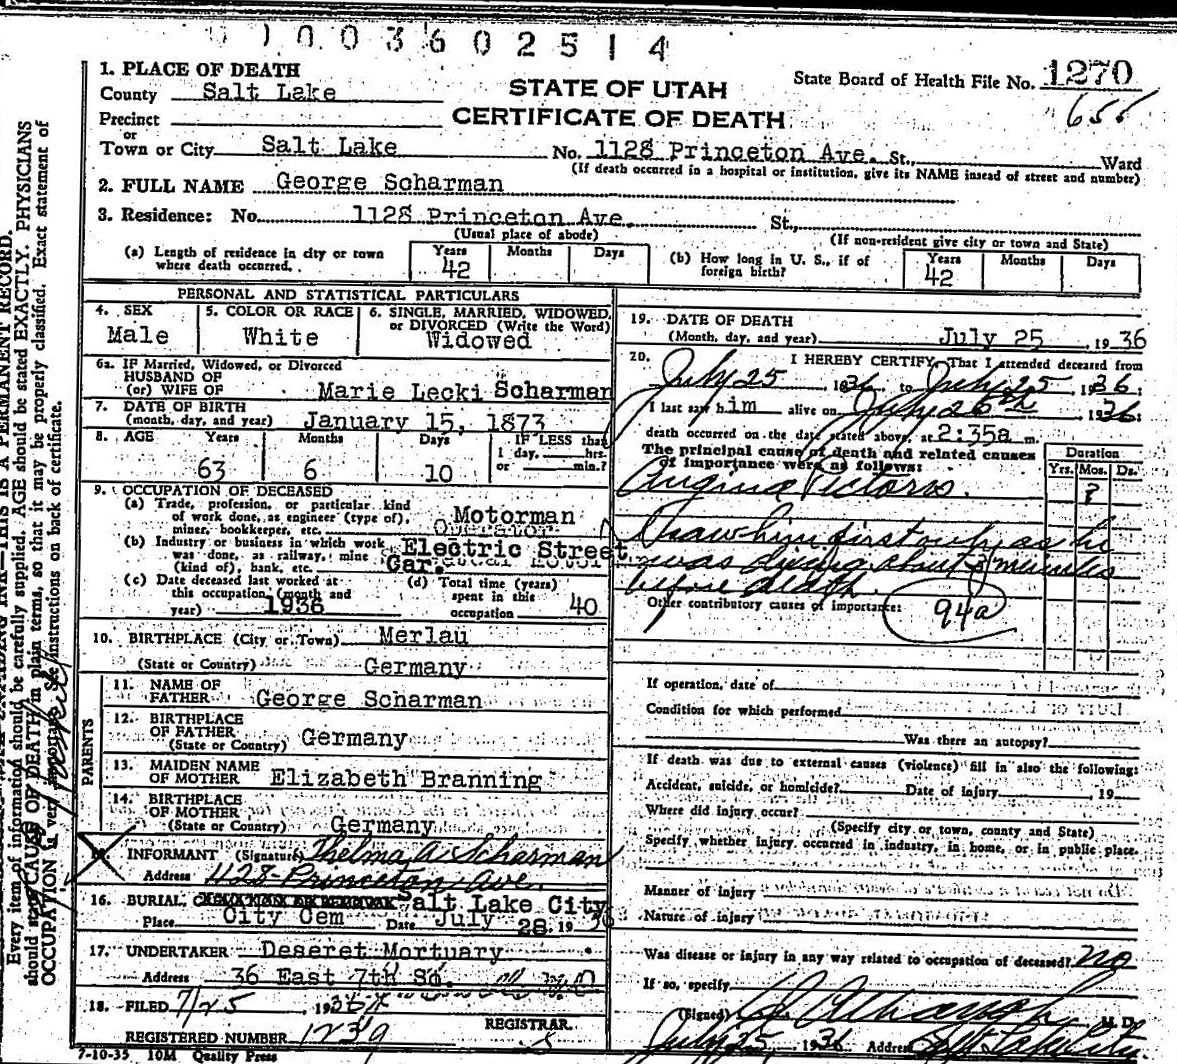 1003602514
1. PLACE OF DEATH
County Salt Lake
STATE OF UTAH
CERTIFICATE OF DEATH
State Board of Health File No. 1270
655
Precinct
or
Town or City Salt Lake No. 1128 Princeton Ave. St., Ward
(If death occurred in a hospital or institution, give its NAME instead of street and number)
2. FULL NAME George Scharman
3. Residence: No. 1128 Princeton Ave. St.,
(Usual place of abode) (If non-resident give city or town and State)
(a) Length of residence in city or town where death occurred. Years 42 Months Days
(b) How long in U. S., if of foreign birth? Years 42 Months Days
PERSONAL AND STATISTICAL PARTICULARS
4. SEX Male
5. COLOR OR RACE White
6. SINGLE, MARRIED, WIDOWED, or DIVORCED (Write the Word) Widowed
6a. IF Married, Widowed, or Divorced
HUSBAND OF
(or) WIFE OF Marie Lecki Scharman
7. DATE OF BIRTH
(month, day, and year) January 15, 1873
8. AGE Years 63 Months 6 Days 10 IF LESS than 1 day, hrs. or min.?
9. OCCUPATION OF DECEASED
(a) Trade, profession, or particular kind of work done, as engineer (type of), miner, bookkeeper, etc. Motorman
Operator
(b) Industry or business in which work was done, as railway, mine (kind of), bank, etc. Electric Street Car.
(c) Date deceased last worked at this occupation (month and year) 1936
(d) Total time (years) spent in this occupation 40
10. BIRTHPLACE (City or Town) Merlau
(State or Country) Germany
PARENTS
11. NAME OF FATHER George Scharman
12. BIRTHPLACE OF FATHER (State or Country) Germany
13. MAIDEN NAME OF MOTHER Elizabeth Branning
14. BIRTHPLACE OF MOTHER (State or Country) Germany
INFORMANT (Signature) Thelma A Scharman
Address 1128 Princeton Ave.
16. BURIAL, Salt Lake City
Place City Cem Date July 28, 1936
17. UNDERTAKER Deseret Mortuary
Address 36 East 7th So.
18. FILED 7/25, 1936
REGISTRAR.
REGISTERED NUMBER 1239
7-10-35 10M Quality Press
19. DATE OF DEATH
(Month, day, and year) July 25, 1936
20. I HEREBY CERTIFY, That I attended deceased from
July 25 1936 to July 25, 1936;
I last saw him alive on July 25th, 1936;
death occurred on the date stated above, at 2:35a m.
The principal cause of death and related causes of importance were as follows:
Duration
Yrs. Mos. Ds.
Angina Pectoris. ?
I saw him first only as he
was dying about 5 minutes
before death.
Other contributory causes of importance:
94a
If operation, date of
Condition for which performed
Was there an autopsy?
If death was due to external causes (violence) fill in also the following:
Accident, suicide, or homicide? Date of injury 19
Where did injury occur?
(Specify city or town, county and State)
Specify whether injury occurred in industry, in home, or in public place.
Manner of injury
Nature of injury
Was disease or injury in any way related to occupation of deceased? no
If so, specify
(Signed) M. D.
July 25 1936 Address Salt Lake City
Every item of information should be carefully supplied. AGE should be stated EXACTLY. PHYSICIANS
should state CAUSE OF DEATH in plain terms, so that it may be properly classified. Exact statement of
OCCUPATION is very important. See instructions on back of certificate.
INK—THIS IS A PERMANENT RECORD.